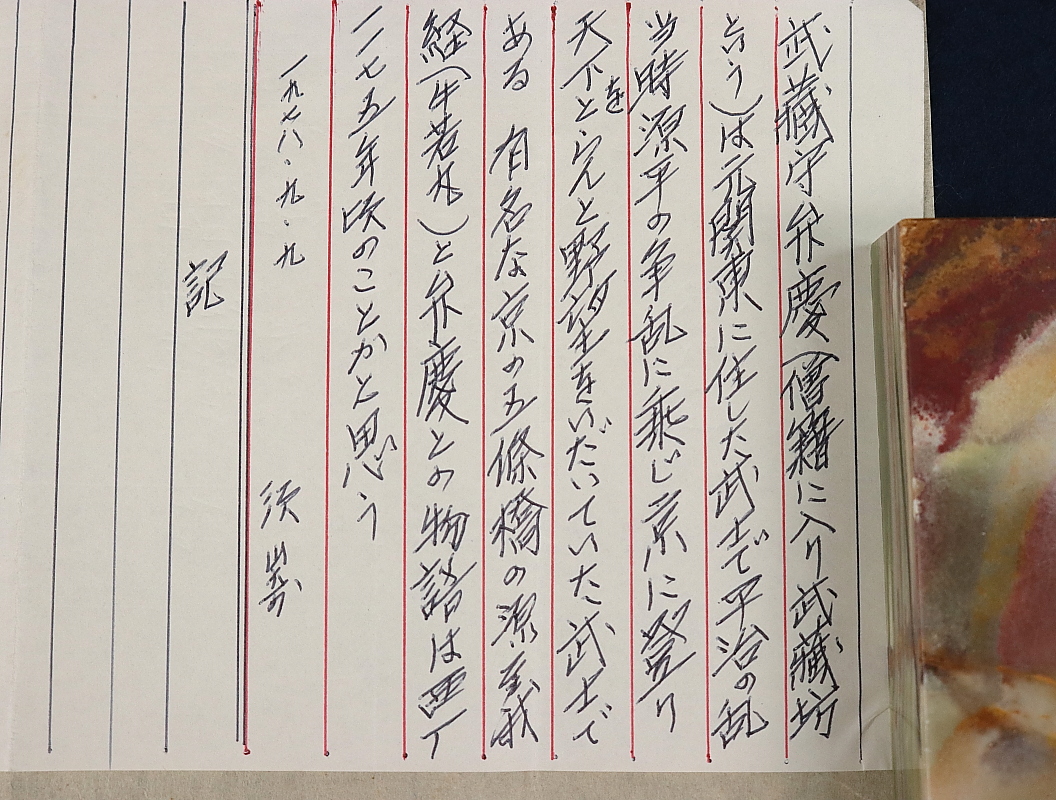 武蔵守弁慶(僧籍に入り武蔵坊
という)は元関東に住した武士で平治の乱
当時源平の争乱に乗じ京に登り
天下をとらんと野望をいだいていた武士で
ある 有名な京の五條橋の源義
経(牛若丸)と弁慶との物語は西一
一七五年頃のことかと思う
一九七八、九、九 須崎
記